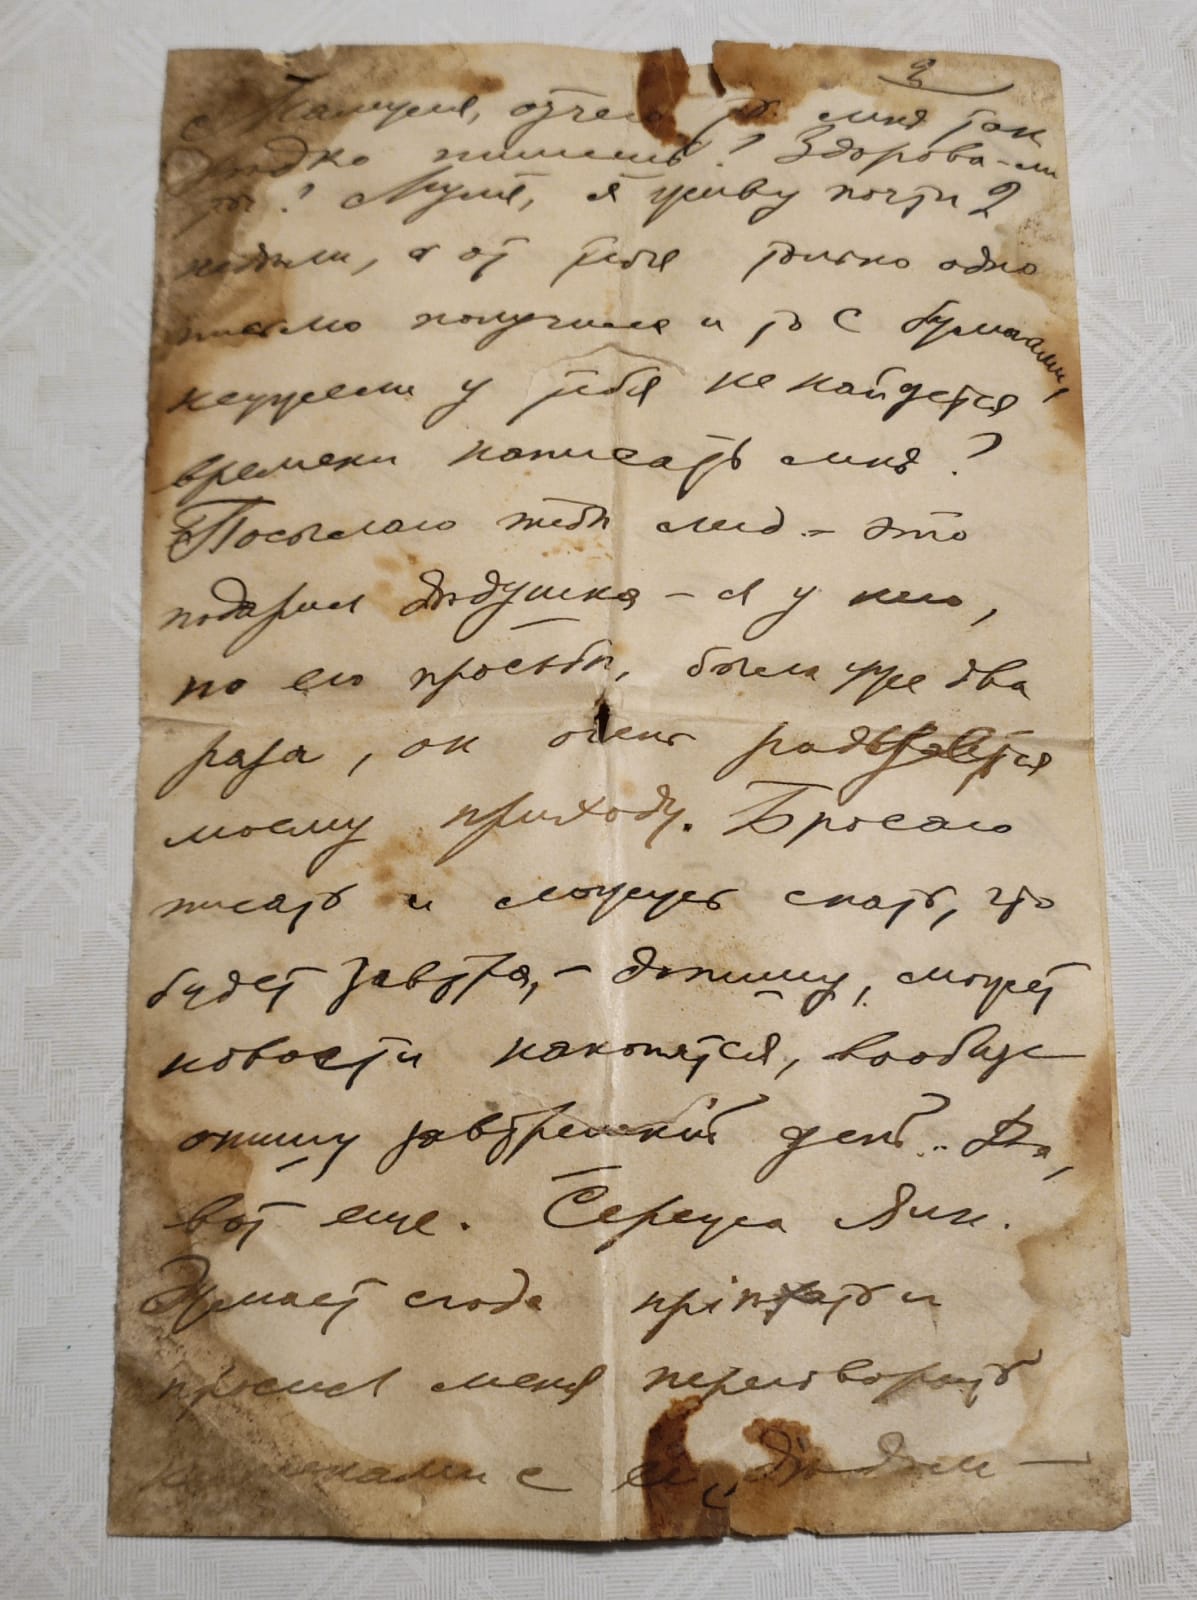 2
Мамуля, отчего ты мнѣ так
рѣдко пишешь? Здорова-ли
ты? Муля, я живу почти 2
недѣли, а от тебя только одно
письмо получила и то с бумагами,
неужели у тебя не найдется
времени написать мнѣ?
Посылаю тебѣ мед - это
подарил дѣдушка - я у него,
по его просьбѣ, была уже два
раза, он очень радуется
моему приходу. Бросаю
писать и ложусь спать, что
будет завтра, - допишу, может
новости накопятся, вообще
опишу завтрешній день.. Да,
вот еще. Сережа Янк.
думает сюда пріѣхать и
просил меня переговорить
с дядей -